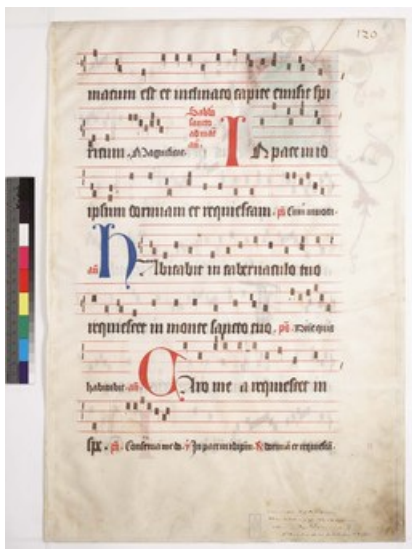 120
matum est et inclinato capite emisit spi
ritum. Magnificat. Sabbo sancto ad mat an. In pace in id
ipsum dormiam et requiescam. ps. Cum invoca
an. Habitabit in tabernaculo tuo
requiescet in monte sancto tuo. ps. Dne quis
habitabit. an. Caro mea requiescet in
spe. ps. Conserva me d. In pace in idipm. dormia et requiesca.